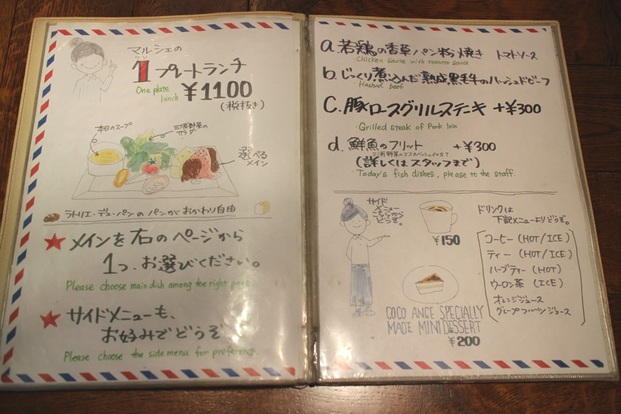 マルシェの
1プレートランチ
One plate lunch
¥1100
(税抜き)
本日のスープ
サラダ
選べる
メイン
ラトリエ・デュ・パンのパンがおかわり自由
★メインを右のページから
1つ、お選びください。
Please choose main dish among the right page.
★サイドメニューも、
お好みでどうぞ。
Please choose the side menu for preference.
a. 若鶏の香草パン粉焼き トマトソース
Chicken saute with tomato sauce
b. じっくり煮込んだ熟成黒毛牛のハッシュドビーフ
Hashed beef
C. 豚ロースグリルステーキ +¥300
Grilled steak of Pork loin
d. 鮮魚のフリット +¥300
(詳しくはスタッフまで)
Today's fish dishes, please to the staff.
サイド
メニュー
¥150
COCO ANGE SPECIALLY
MADE MINI DESSERT
¥200
ドリンクは
下記メニューよりどうぞ。
コーヒー (HOT/ICE)
ティー (HOT/ICE)
ハーブティー (HOT)
ウーロン茶 (ICE)
オレンジジュース
グレープフルーツジュース